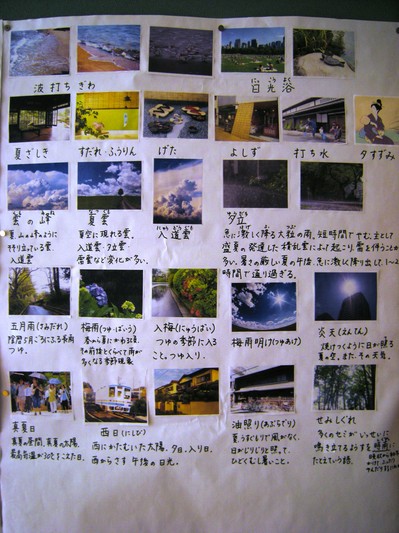 波打ちぎわ
日光浴
にっ こう よく
夏ざしき
すだれ・ふうりん
げた
よしず
打ち水
夕すずみ
雲の峰
みね
夏雲
入道雲
にゅうどうぐも
夕立
夏、山のみねのように
立っている雲。
入道雲
夏空に現れる雲。
入道雲・夕立雲・
雷雲など変化が多い。
急に激しく降る大粒の雨。短時間でやむ。主として
盛夏の発達した積乱雲によって起こり、雷を伴うことが
多い。暑さの厳しい夏の午後、急に激しく降り出して、1〜2
時間で通り過ぎる。
五月雨(さみだれ)
陰暦5月ごろにふる長雨
つゆ。
梅雨(つゆ・ばいう)
春から夏にかわる頃、
その前後とくらべて雨が
多くなる季節現象
入梅(にゅうばい)
つゆの季節に入る
こと。つゆ入り。
梅雨明け(つゆあけ)
炎天(えんてん)
焼けつくように日が照る
夏の空。また、その天気。
真夏日
真夏の昼間、真夏の太陽、
最高気温が30℃をこえた日。
西日(にしび)
西にかたむいた太陽。夕日。入り日。
西からさす午後の日光。
油照り(あぶらでり)
夏、うすぐもりで風がなく、
日がじりじりと照って、
ひどくむし暑いこと。
せみしぐれ
多くのセミがいっせいに
鳴き立てるようすを時雨に
たとえていう語。